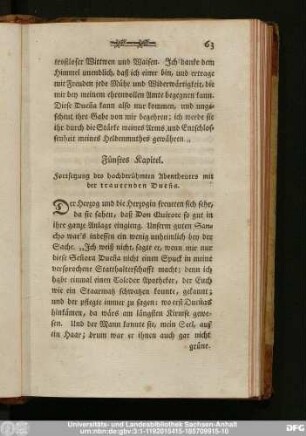 63
trostloser Wittwen und Waisen. Ich danke dem
Himmel unendlich, daß ich einer bin, und ertrage
mit Freuden jede Mühe und Widerwärtigkeit, die
mir bey meinem ehrenvollen Amte begegnen kann.
Diese Dueña kann also nur kommen, und unge-
scheut ihre Gabe von mir begehren; ich werde sie
ihr durch die Stärke meines Arms und Entschlos-
senheit meines Heldenmuthes gewähren.
Fünftes Kapitel.
Fortsetzung des hochberühmten Abentheuers mit
der trauernden Dueña.
Der Herzog und die Herzogin freueten sich sehr,
da sie sahen, daß Don Quixote so gut in
ihre ganze Anlage eingieng. Unserm guten San-
cho war's indessen ein wenig unheimlich bey der
Sache. „Ich weiß nicht, sagte er, wenn mir nur
diese Señora Dueña nicht einen Spuck in meine
versprochene Statthalterschafft macht; denn ich
habe einmal einen Toleder Apotheker, der Euch
wie ein Staarmatz schwatzen konnte, gekannt;
und der pflegte immer zu sagen: wo erst Dueñas
hinkämen, da wärs am längsten Kirmse gewe-
sen. Und der Mann konnte sie, mein Seel, auf
ein Haar; drum war er ihnen auch gar nicht
grüne.
Universitäts- und Landesbibliothek Sachsen-Anhalt
urn:nbn:de:gbv:3:1-1192015415-185709915-10
DFG